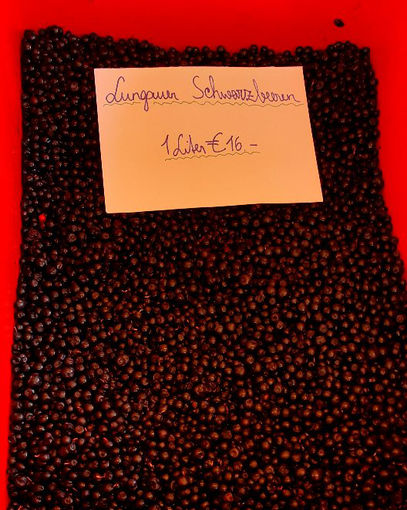 Lungauer Schwarzbeeren
1 Liter € 16.-